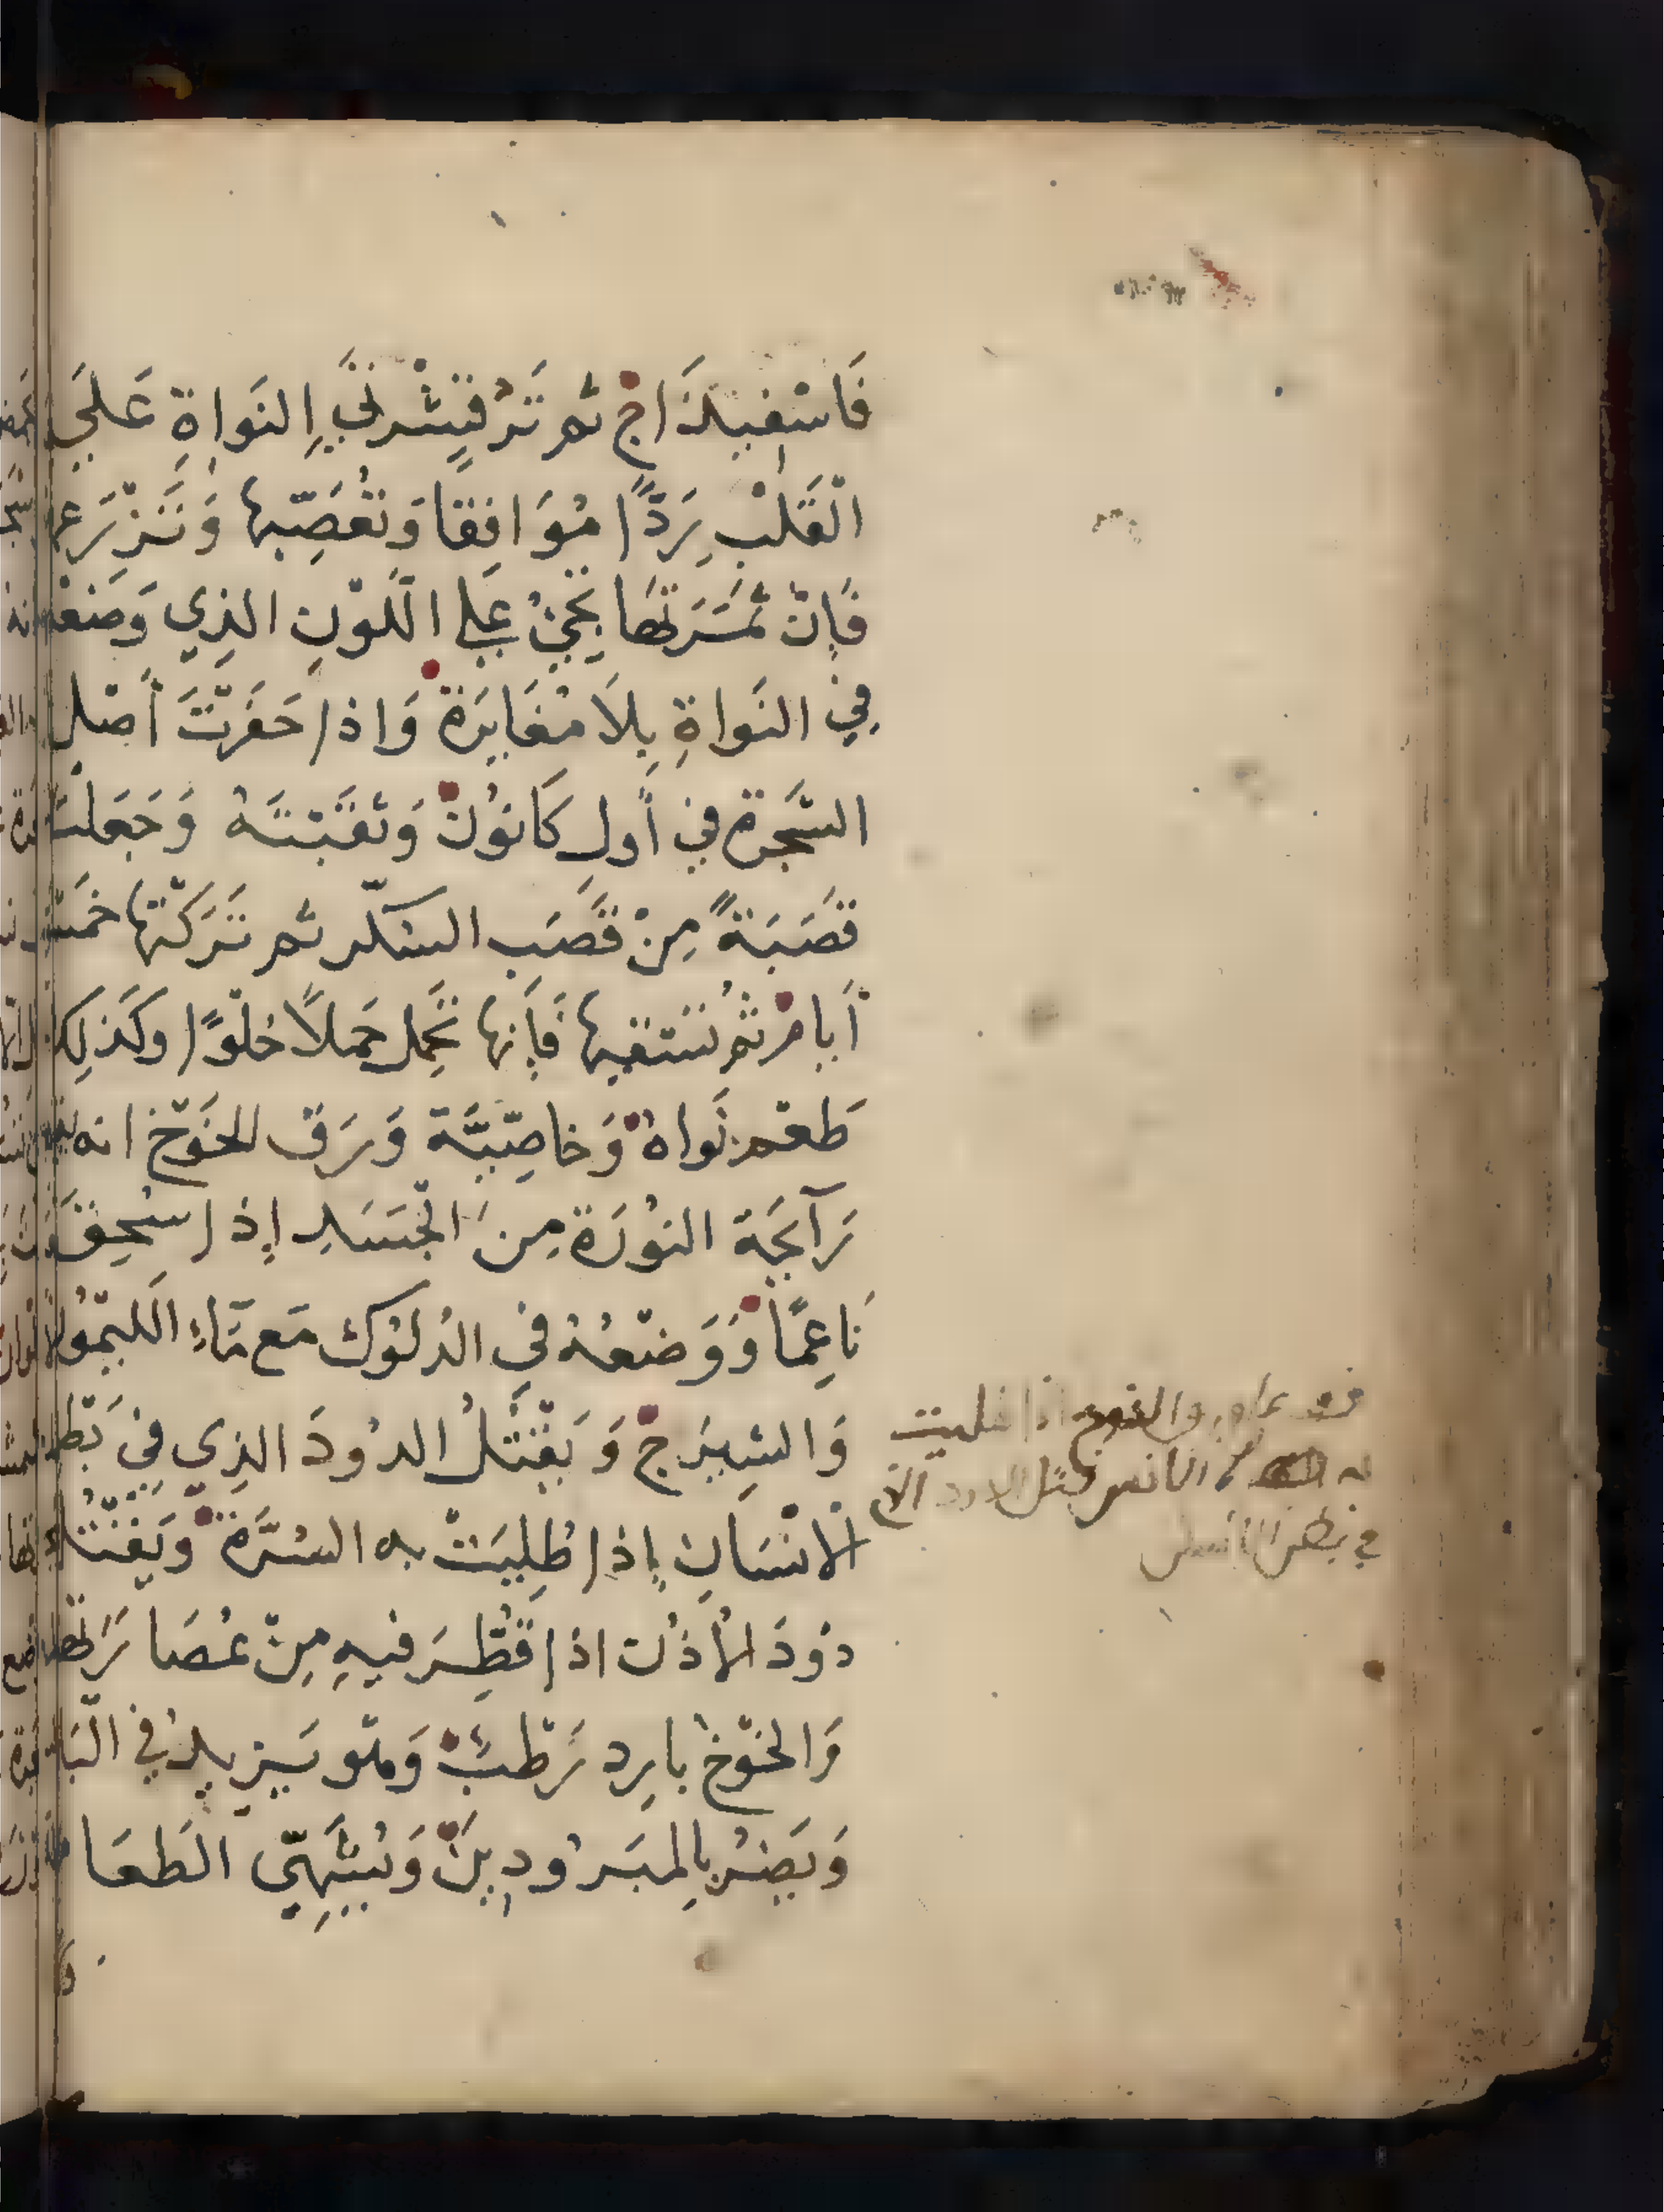 فَاسْفِيلَذَاجْ ثم تَرْ قِشْرَتَيِ النَواةِ عَلَي
الْقَلْبِ رَدًّا مُوَافِقا وَتُعَصِّبها وَتَزْرَعها
فَإِنْ ثَمَرَتَهَا تَجِيْ عَلي اللَّوْنِ الذِي وَضعْته
فِي النَواةِ بِلاَ مُغَايَرَة وَاذا حَفَرْتَ أَصْل
الشَجرة في أَولِ كَانوُنْ وَثَقَبْتَهُ وَجَعَلْتَ
قَصَبَةً مِنْ قَصَب السكّر ثم تَرَكْتَها خَمْسَة
أَيامْ ثُم تَسْقيها فَإِنها تَحْمِل حَملاً حُلْوًا وكَذلِك
طَعْم نَواهْ وَخاصِّيَّة وَرَق الخَوْخ انه يقطع
رَآئِحَة النوُرَة مِنَ الْجَسَدِ إِذا سُحِقَ
نَاعِمًا وَوَضعْتهُ فِي الدلوُك مَع مَآءِ اللَيْمُو
وَالسِيرَجْ وَيَقْتُلُ الدوُدَ الذِي فِي بَطن
الانْسَانِ إِذا طُلِيَتْ به السُرَّة وَيَقْتُل
دوُدَ الأُذُن اذا قُطِّرَ فيهِ مِنْ عُصَارَتها
وَالخَوْخ بارِد رَطْبْ وَهُو يَزِيدُ في الْبَاه
وَيَضُرُ بِالمبَروُدِينْ وَيُشَهِّي الطَعَام
والخوخ اذا طليت
به السرة قتل الدود الذي
في بطن الانسان